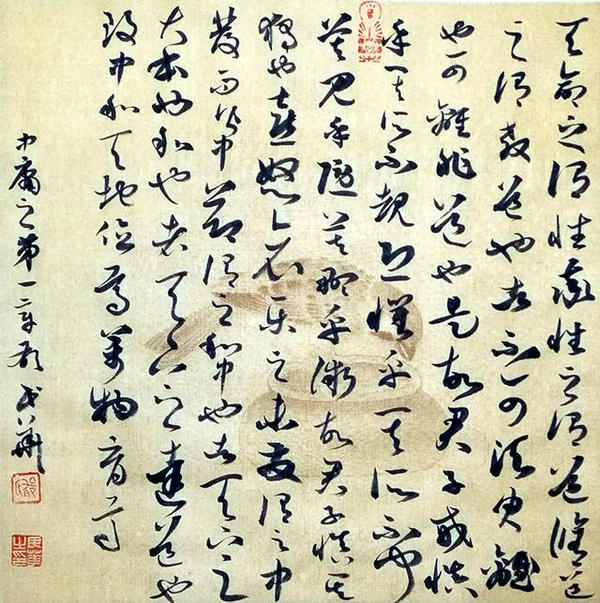 天命之謂性率性之謂道修道
之謂教道也者不可須臾離
也可離非道也是故君子戒慎
乎其所不覩恐懼乎其所不聞
莫見乎隱莫顯乎微故君子慎其
獨也喜怒哀樂之未發謂之中
發而皆中節謂之和中也者天下之
大本也和也者天下之達道也
致中和天地位焉萬物育焉
中庸之第一章